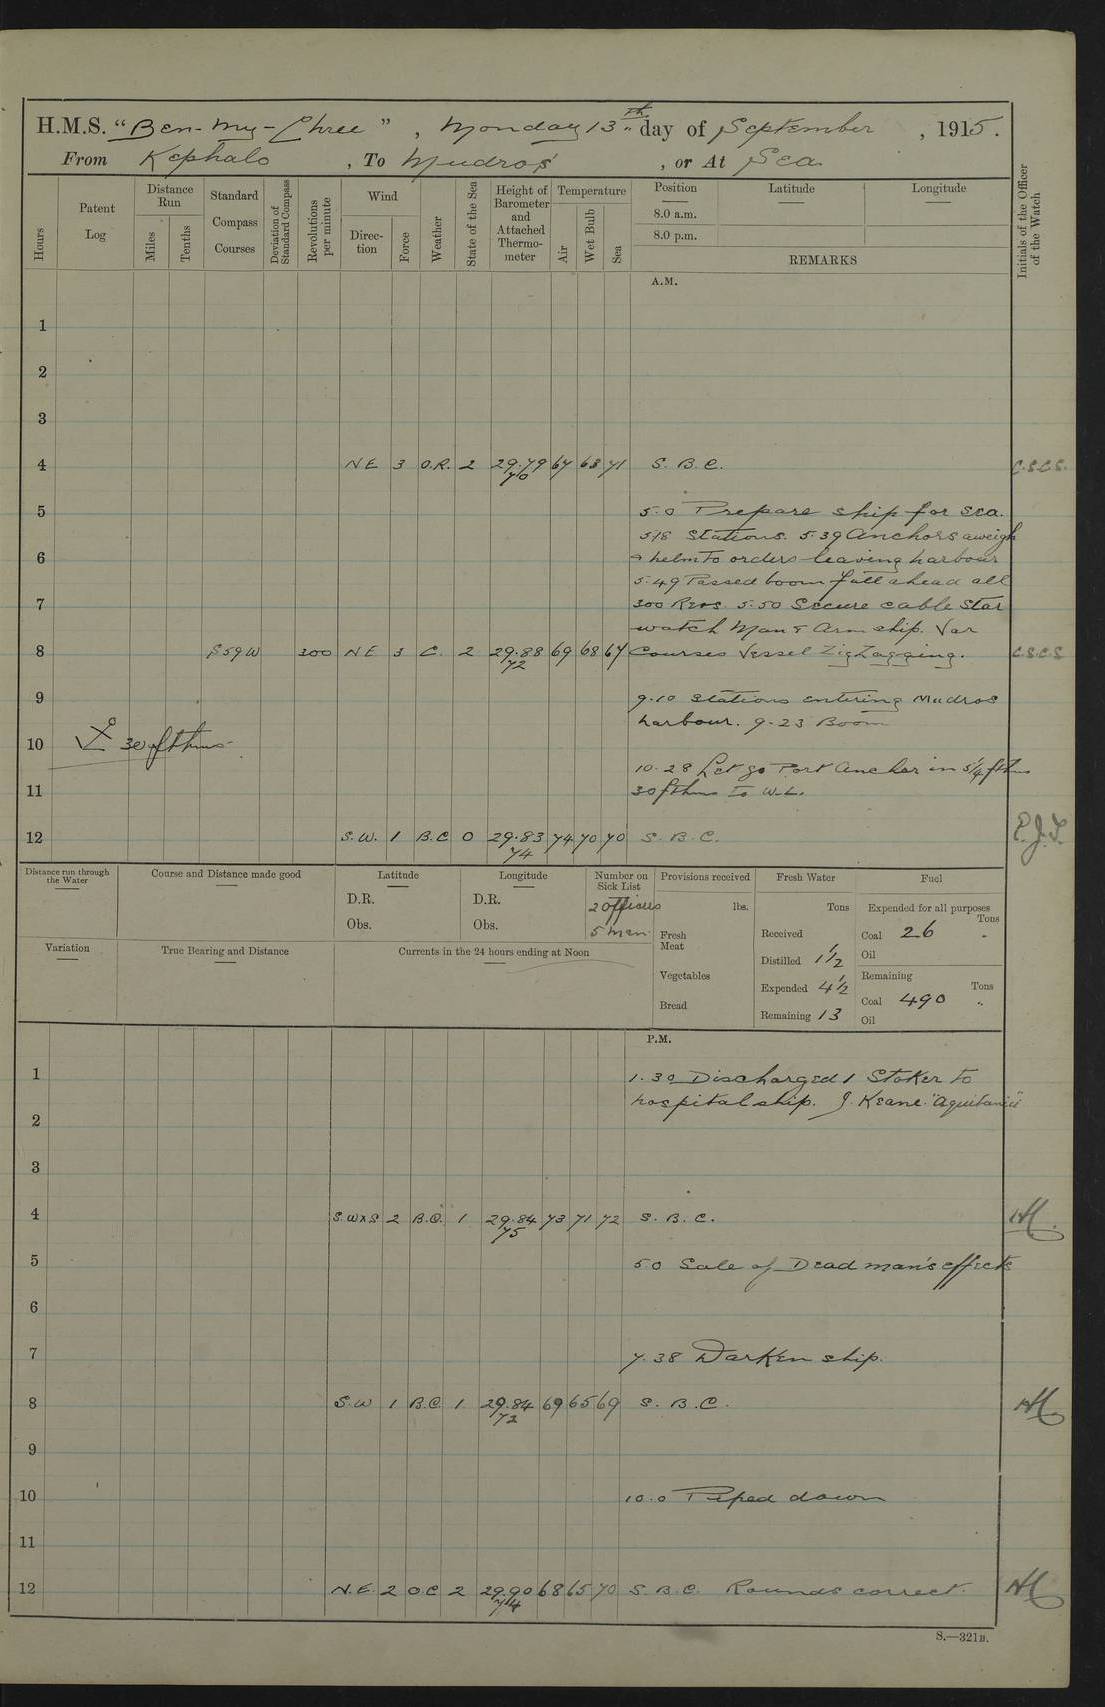 H.M.S. "Ben-my-Chree", Monday 13th day of September, 1915.
From Kephalo, To Mudros, or At Sea
Hours
Patent Log
Distance Run
Miles
Tenths
Standard Compass Courses
Deviation of Standard Compass
Revolutions per minute
Wind
Direction
Force
Weather
State of the Sea
Height of Barometer and Attached Thermometer
Temperature
Air
Wet Bulb
Sea
Position
Latitude
Longitude
8.0 a.m.
8.0 p.m.
REMARKS
Initials of the Officer of the Watch
A.M.
1
2
3
4 NE 3 O.R. 2 29.79 70 67 63 71 S. B. C. C.S.C.S.
5 5.0 Prepare ship for sea.
5.18 Stations. 5.39 Anchors aweigh
6 helm to orders leaving harbour
5.49 Passed boom full ahead all
7 300 Revs. 5.50 Secure cable Star
watch Man & Arm ship. Var
8 S59W 300 NE 3 C. 2 29.88 72 69 68 67 Courses Vessel ZigZagging. C.S.C.S
9 9.10 Stations entering Mudros
harbour. 9.23 Boom
10 30 fthms
10.28 Let go Port Anchor in 5¼ fthms
11 30 fthms to W.L.
12 S.W. 1 B.C 0 29.83 74 74 70 70 S. B. C. E.J.T.
Distance run through the Water
Course and Distance made good
Latitude
D.R.
Obs.
Longitude
D.R.
Obs.
Number on Sick List
2 Officers
5 men
Provisions received
lbs.
Fresh Meat
Vegetables
Bread
Fresh Water
Tons
Received
Distilled 1½
Expended 4½
Remaining 13
Fuel
Expended for all purposes
Tons
Coal 26 "
Oil
Remaining
Tons
Coal 490 "
Oil
Variation
True Bearing and Distance
Currents in the 24 hours ending at Noon
P.M.
1 1.30 Discharged 1 Stoker to
hospital ship. J. Keane. "Aquitania"
2
3
4 S.WxS 2 B.C. 1 29.84 75 73 71 72 S. B. C.
5 5.0 Sale of Dead man's effects
6
7 7.38 Darken ship.
8 S.W 1 B.C. 1 29.84 72 69 65 69 S. B. C.
9
10 10.0 Piped down
11
12 N.E. 2 O C 2 29.90 74 68 65 70 S. B. C. Rounds correct.
S.—321B.